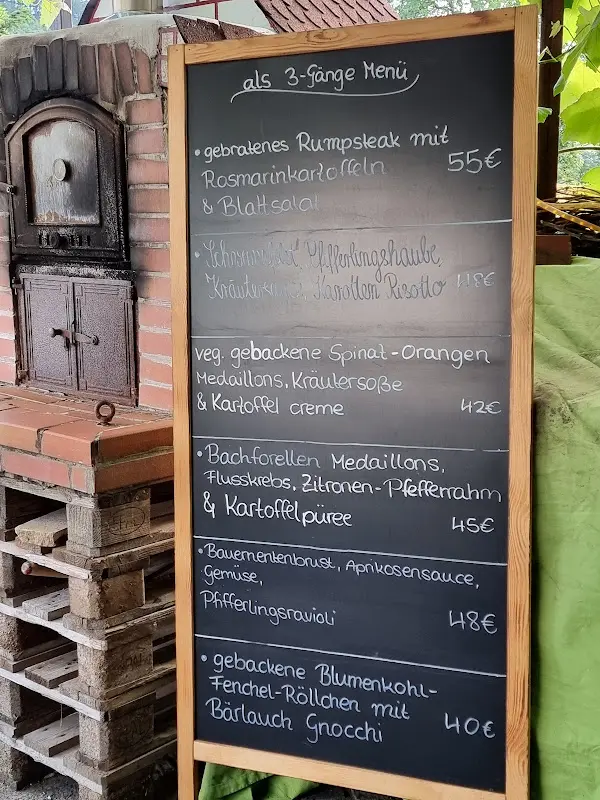 als 3-Gänge Menü
• gebratenes Rumpsteak mit
Rosmarinkartoffeln 55€
& Blattsalat
Pfifferlingshaube,
Karotten Risotto 48€
veg. gebackene Spinat-Orangen
Medaillons, Kräutersoße
& Kartoffel creme 42€
• Bachforellen Medaillons,
Flusskrebs, Zitronen-Pfefferrahm
& Kartoffelpüree 45€
• Bauernentenbrust, Aprikosensauce,
Gemüse,
Pfifferlingsravioli 48€
• gebackene Blumenkohl-
Fenchel-Röllchen mit
Bärlauch Gnocchi 40€